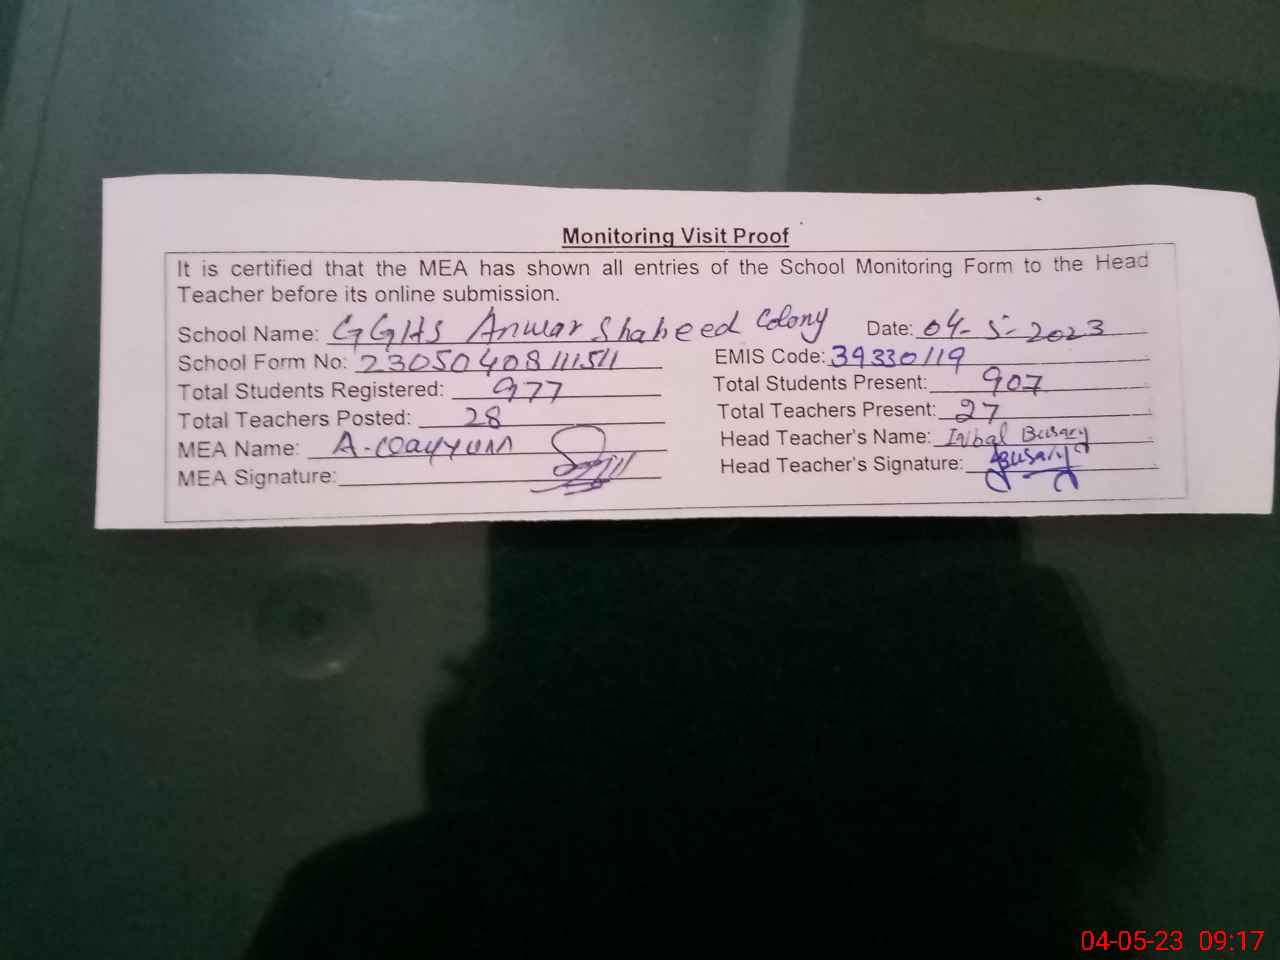 Monitoring Visit Proof
It is certified that the MEA has shown all entries of the School Monitoring Form to the Head
Teacher before its online submission.
School Name: GGHS Anwar Shaheed Colony Date: 04-5-2023
School Form No: 23050408111511 EMIS Code: 39330119
Total Students Registered: 977 Total Students Present: 907
Total Teachers Posted: 28 Total Teachers Present: 27
MEA Name: A-Qayyum Head Teacher's Name: Busary
MEA Signature: Head Teacher's Signature: Busary
04-05-23 09:17